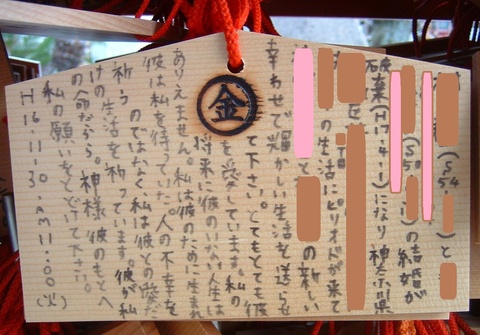 (S54 )と
(S50 )の結婚が
破棄(H17.4.1)になり神奈川県
を
の生活にピリオドが来て
と の新しい
幸わせで輝かしい生活を送らせ
金
て下さい。とてもとても彼
を愛しています。私の
将来に彼のいない人生は
ありえません。私は彼のために生まれ
彼は私を待っていた。人の不幸を
祈うのではなく、私は彼との だ
けの生活を祈っています。彼が私
の命だから。神様彼のもとへ
私の願いをとどけて下さい。
H16.11.30.AM11:00(火)